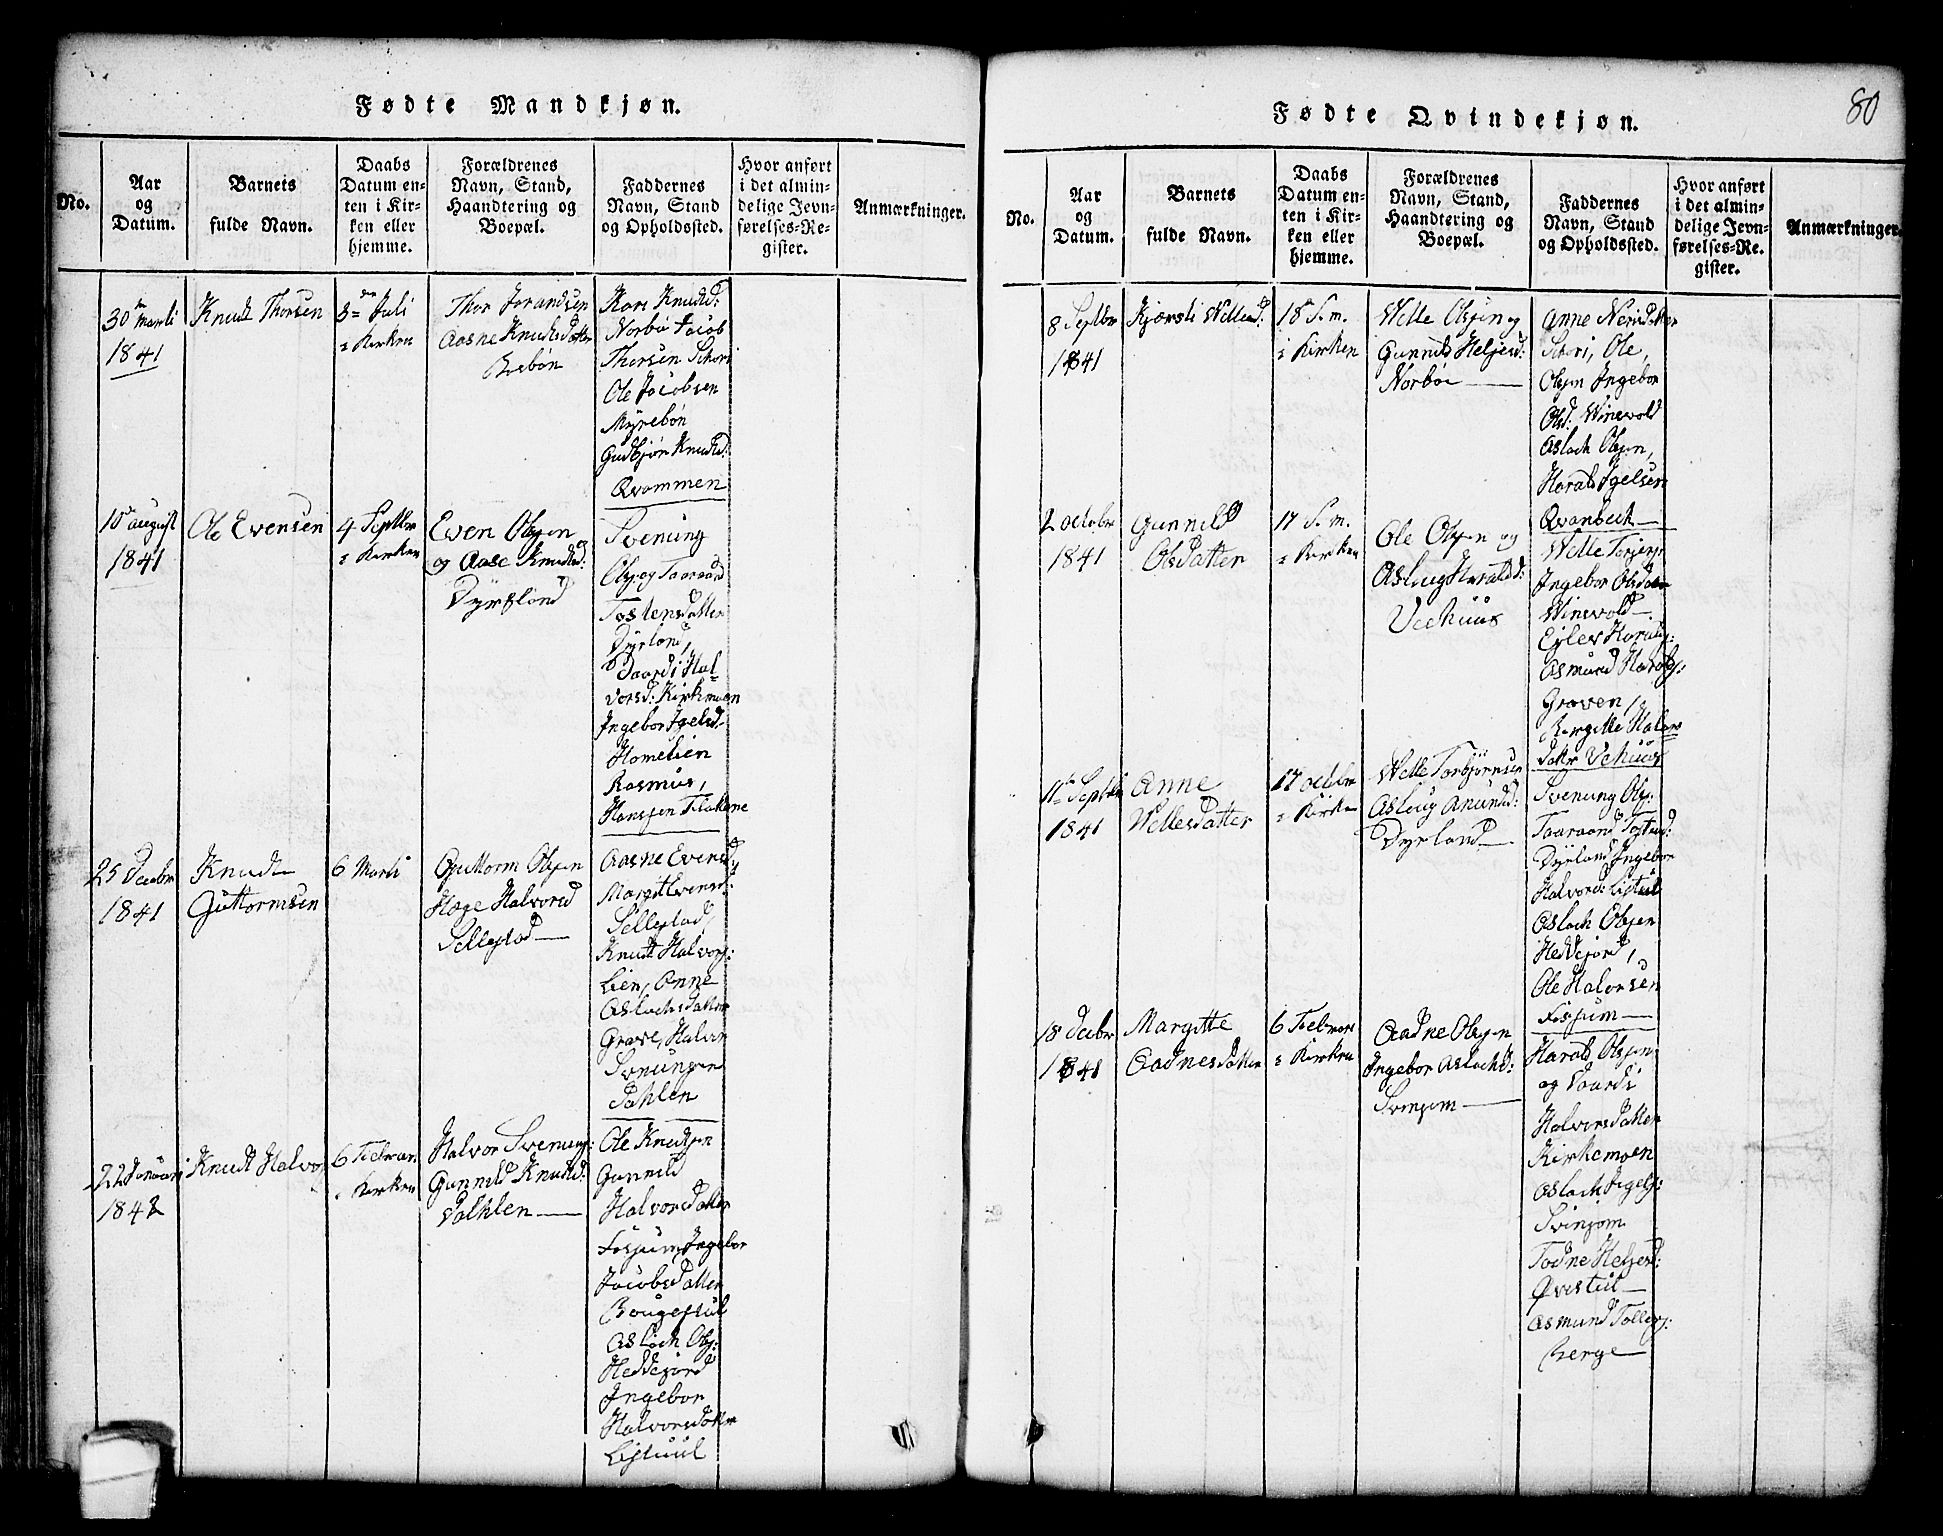 Fødte Mandkjøn.
No.
Aar
og
Datum.
Barnets
fulde Navn.
Daabs
Datum en-
ten i Kir-
ken eller
hjemme.
Forældrenes
Navn, Stand,
Haandtering og
Boepæl.
Faddernes
Navn, Stand
og Opholdssted.
Hvor anført
i det almin-
delige Jevn-
førelses-Re-
gister.
Anmærkninger.
30 Marti
1841
Knudt Thorsen
3 Juli
i Kirken
Thor Jorandsen
Aasne Knudsdatter
Kari Knudsd:
Norbø Jacob
Thorsen Schori
Ole Jacobsen
Myrebøn
Gudbjør Knudsd:
Qvammen
10 august
1841
Ole Evensen
4 Septbr
i Kirken
Even Olsen
og Aase Knudsd:
Dyrsland
Svenung
Ols: og Taaraand
Tostensdatter
Dyrland,
Vaardi Hal-
vorsd: Kirkmoen
Ingebor Igelsd:
Homelien
Rasmus,
Hansen
25 Decbr
1841
Knudt
Guttormsen
6 Marti
Guttorm Olsen
Hæge Halvorsd
Sellestad
Aasne Evensd
Margit Evensd:
Sellestad
Knudt Halvors:
Lien, Anne
Aslachsdatter
Grave, Halvor
Svenungsen
Dahlen
22 Januari
1842
Knudt Halvors
6 Februar
i Kirken
Halvor Svenungs:
Gunnild Knudsd:
Dahlen
Ole Knudsen
Gunnild
Halvorsdatter
Fosjum, Ingebor
Jacobsdatter
Bougestul
Aslach Ols:
Heddejord
Ingebor
Halvorsdatter
Listuul
80
Fødte Qvindekjøn.
No.
Aar
og
Datum.
Barnets
fulde Navn.
Daabs
Datum en-
ten i Kir-
ken eller
hjemme.
Forældrenes
Navn, Stand,
Haandtering og
Boepæl.
Faddernes
Navn, Stand
og Opholdssted.
Hvor anført
i det almin-
delige Jevn-
førelses-Re-
gister.
Anmærkninger.
8 Septbr
1841
Kjørsti Wellesd:
18 S. m.
i Kirken
Welle Olsen og
Gunnild Heljesd:
Norbø
Anne Nersdatter
Schori, Ole,
Olsen Ingebor
Olsd: Winevold
Aslach Olsen,
Harald Igelsen
Qvanbech
2 Octobr
1841
Gunnild
Olsdatter
17 S. m.
i Kirken
Ole Olsen og
Aslaug Haraldsd:
Veehuus
Welle Torjers:
Ingebor Olsdatter
Winevold
Eilev Haralds:
Asmund Haralds:
Graven,
Bergitte Halvors
datter Vehuus
11 Septbr
1841
Anne
Wellesdatter
17 Octobr
i Kirken
Welle Torbjørnsen
Aslaug Anundsd:
Dyrland
Svenung Ols:
Taaraand Tostensd:
Dyrland Ingebor
Halvorsd: Listul
Aslach Olsen
Heddejord,
Ole Halvorsen
Fosjum
18 Decbr
1841
Margitte
Aadnesdatter
6 Februar
i Kirken
Aadne Olsen
Ingebor Aslachsd:
Svinjom
Harald Olsen
og Vaardi
Halvorsdatter
Kirkemoen
Aslach Igels:
Svinjom
Todne Heljesd:
Øvestul
Asmund Tollefs:
Berge